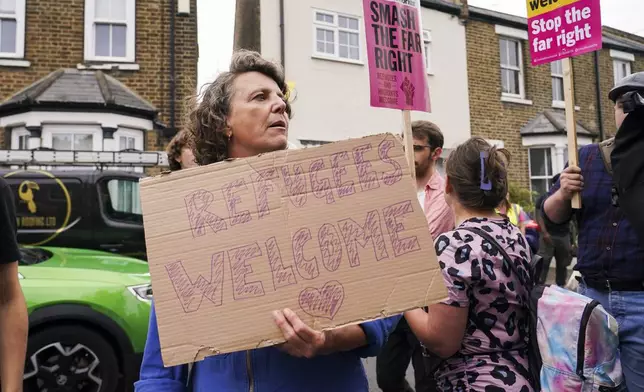 SMASH
THE FAR
RIGHT
Stop the
far right
REFUGEES
WELCOME
ROOFING LTD